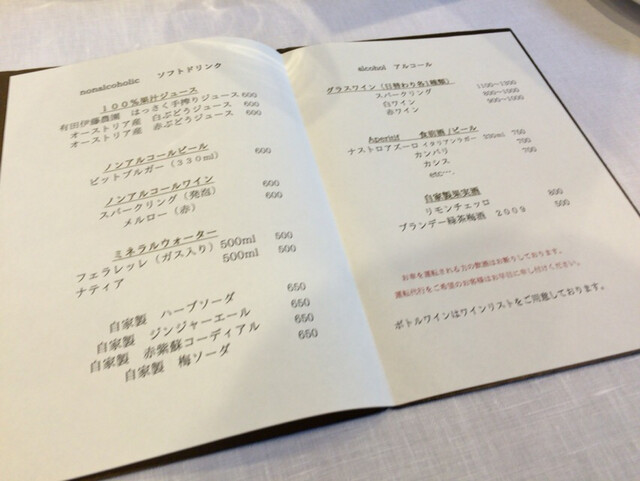 nonalcoholic ソフトドリンク
100%果汁ジュース
有田伊藤農園 はっさく手搾りジュース 600
オーストリア産 白ぶどうジュース 600
オーストリア産 赤ぶどうジュース 600
ノンアルコールビール
ビットブルガー(330ml) 600
ノンアルコールワイン
スパークリング(発泡) 600
メルロー(赤) 600
ミネラルウォーター
フェラレッレ(ガス入り) 500ml 500
ナティア 500ml 500
自家製 ハーブソーダ 650
自家製 ジンジャーエール 650
自家製 赤紫蘇コーディアル 650
自家製 梅ソーダ 650
alcohol アルコール
グラスワイン(日替わり各1種類)
スパークリング 1100~1200
白ワイン 800~1000
赤ワイン 900~1000
Aperist 食前酒/ビール
ナストロアズーロ イタリアンラガー 330ml 750
カンパリ 700
カシス 700
etc….
自家製果実酒
リモンチェッロ 600
ブランデー緑茶梅酒 2009 500
お車を運転される方の飲酒はお断りしております。
運転代行をご希望のお客様はお早目に申し付けください。
ボトルワインはワインリストをご用意しております。